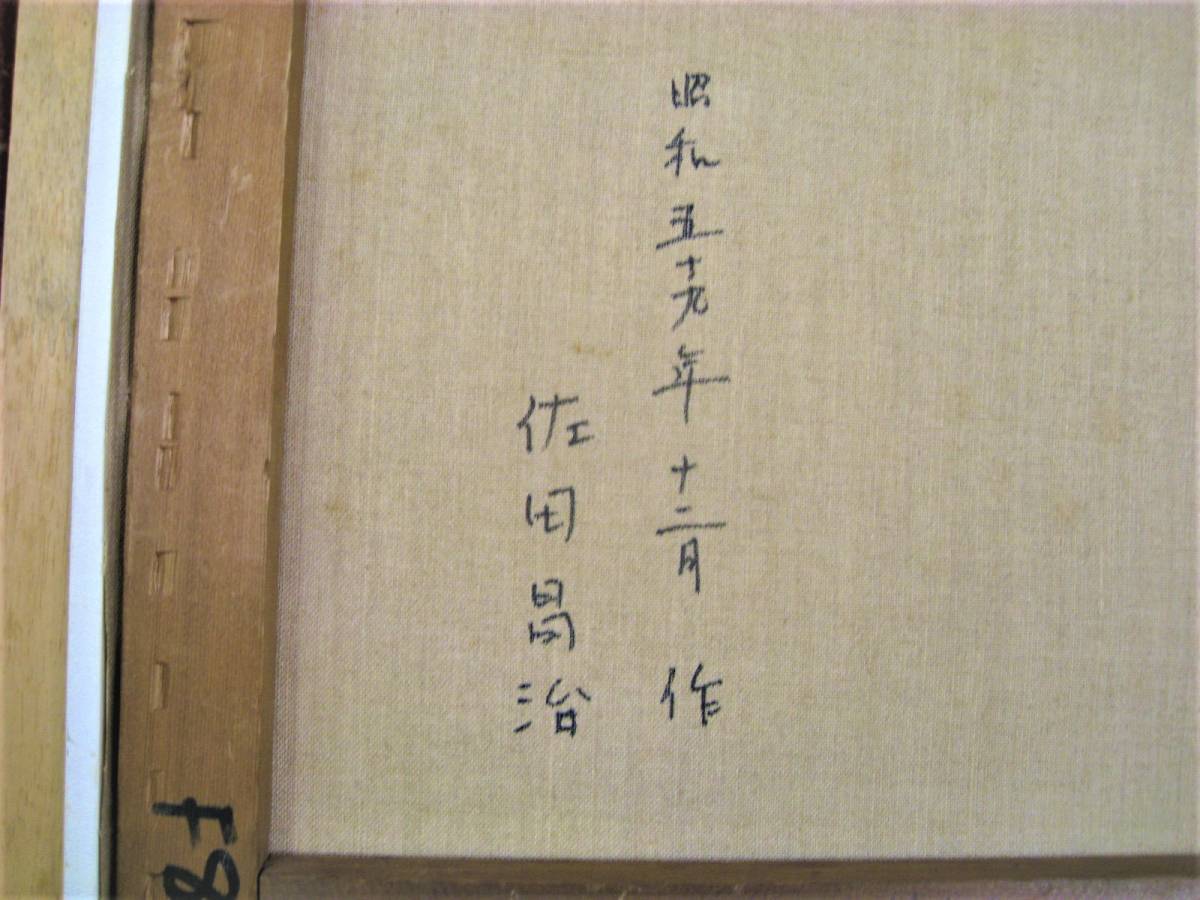 昭和五十九年十二月 作
佐田昌治
F8